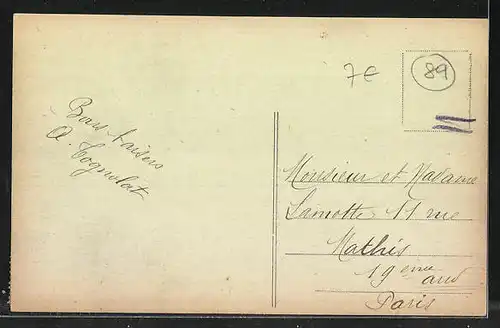 7€
89
Bons baisers
A. Cognolat
Monsieur et Madame
Lamotte 11 rue
Mathis
19eme arr
Paris